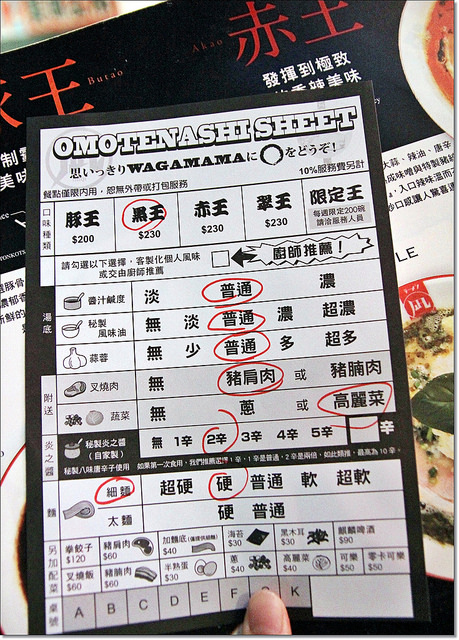 王
Butao
Akao
赤王
發揮到極致
OMOTENASHI SHEET
思いっきりWAGAMAMAに〇をどうぞ!
餐點僅限內用,恕無外帶或打包服務
10%服務費另計
口味種類
豚王 $200
黑王 $230
赤王 $230
翠王 $230
限定王
每週限定200碗
請洽服務人員
請勾選以下選擇,客製化個人風味
或交由廚師推薦
廚師推薦!
湯底
醬汁鹹度 淡 普通 濃
秘製風味油 無 淡 普通 濃 超濃
蒜蓉 無 少 普通 多 超多
附送
叉燒肉 無 豬肩肉 或 豬腩肉
蔬菜 無 蔥 或 高麗菜
炎之醬
秘製炎之醬
(自家製) 無 1辛 2辛 3辛 4辛 5辛 辛
秘製八味唐辛子使用 如果第一次食用,我們推薦選擇1辛,1辛是普通,2辛是兩倍,如此類推,最高為10辛。
麵
細麵 超硬 硬 普通 軟 超軟
太麵 硬 普通
另加配菜
拳餃子 $120
豬肩肉 $60
加麵底 $40
海苔 $30
黑木耳 $30
麒麟啤酒 $90
叉燒飯 $60
豬腩肉 $60
半熟蛋 $30
蔥 $40
高麗菜 $40
可樂 $50
零卡可樂 $50
桌號 A B C D E F K
LE